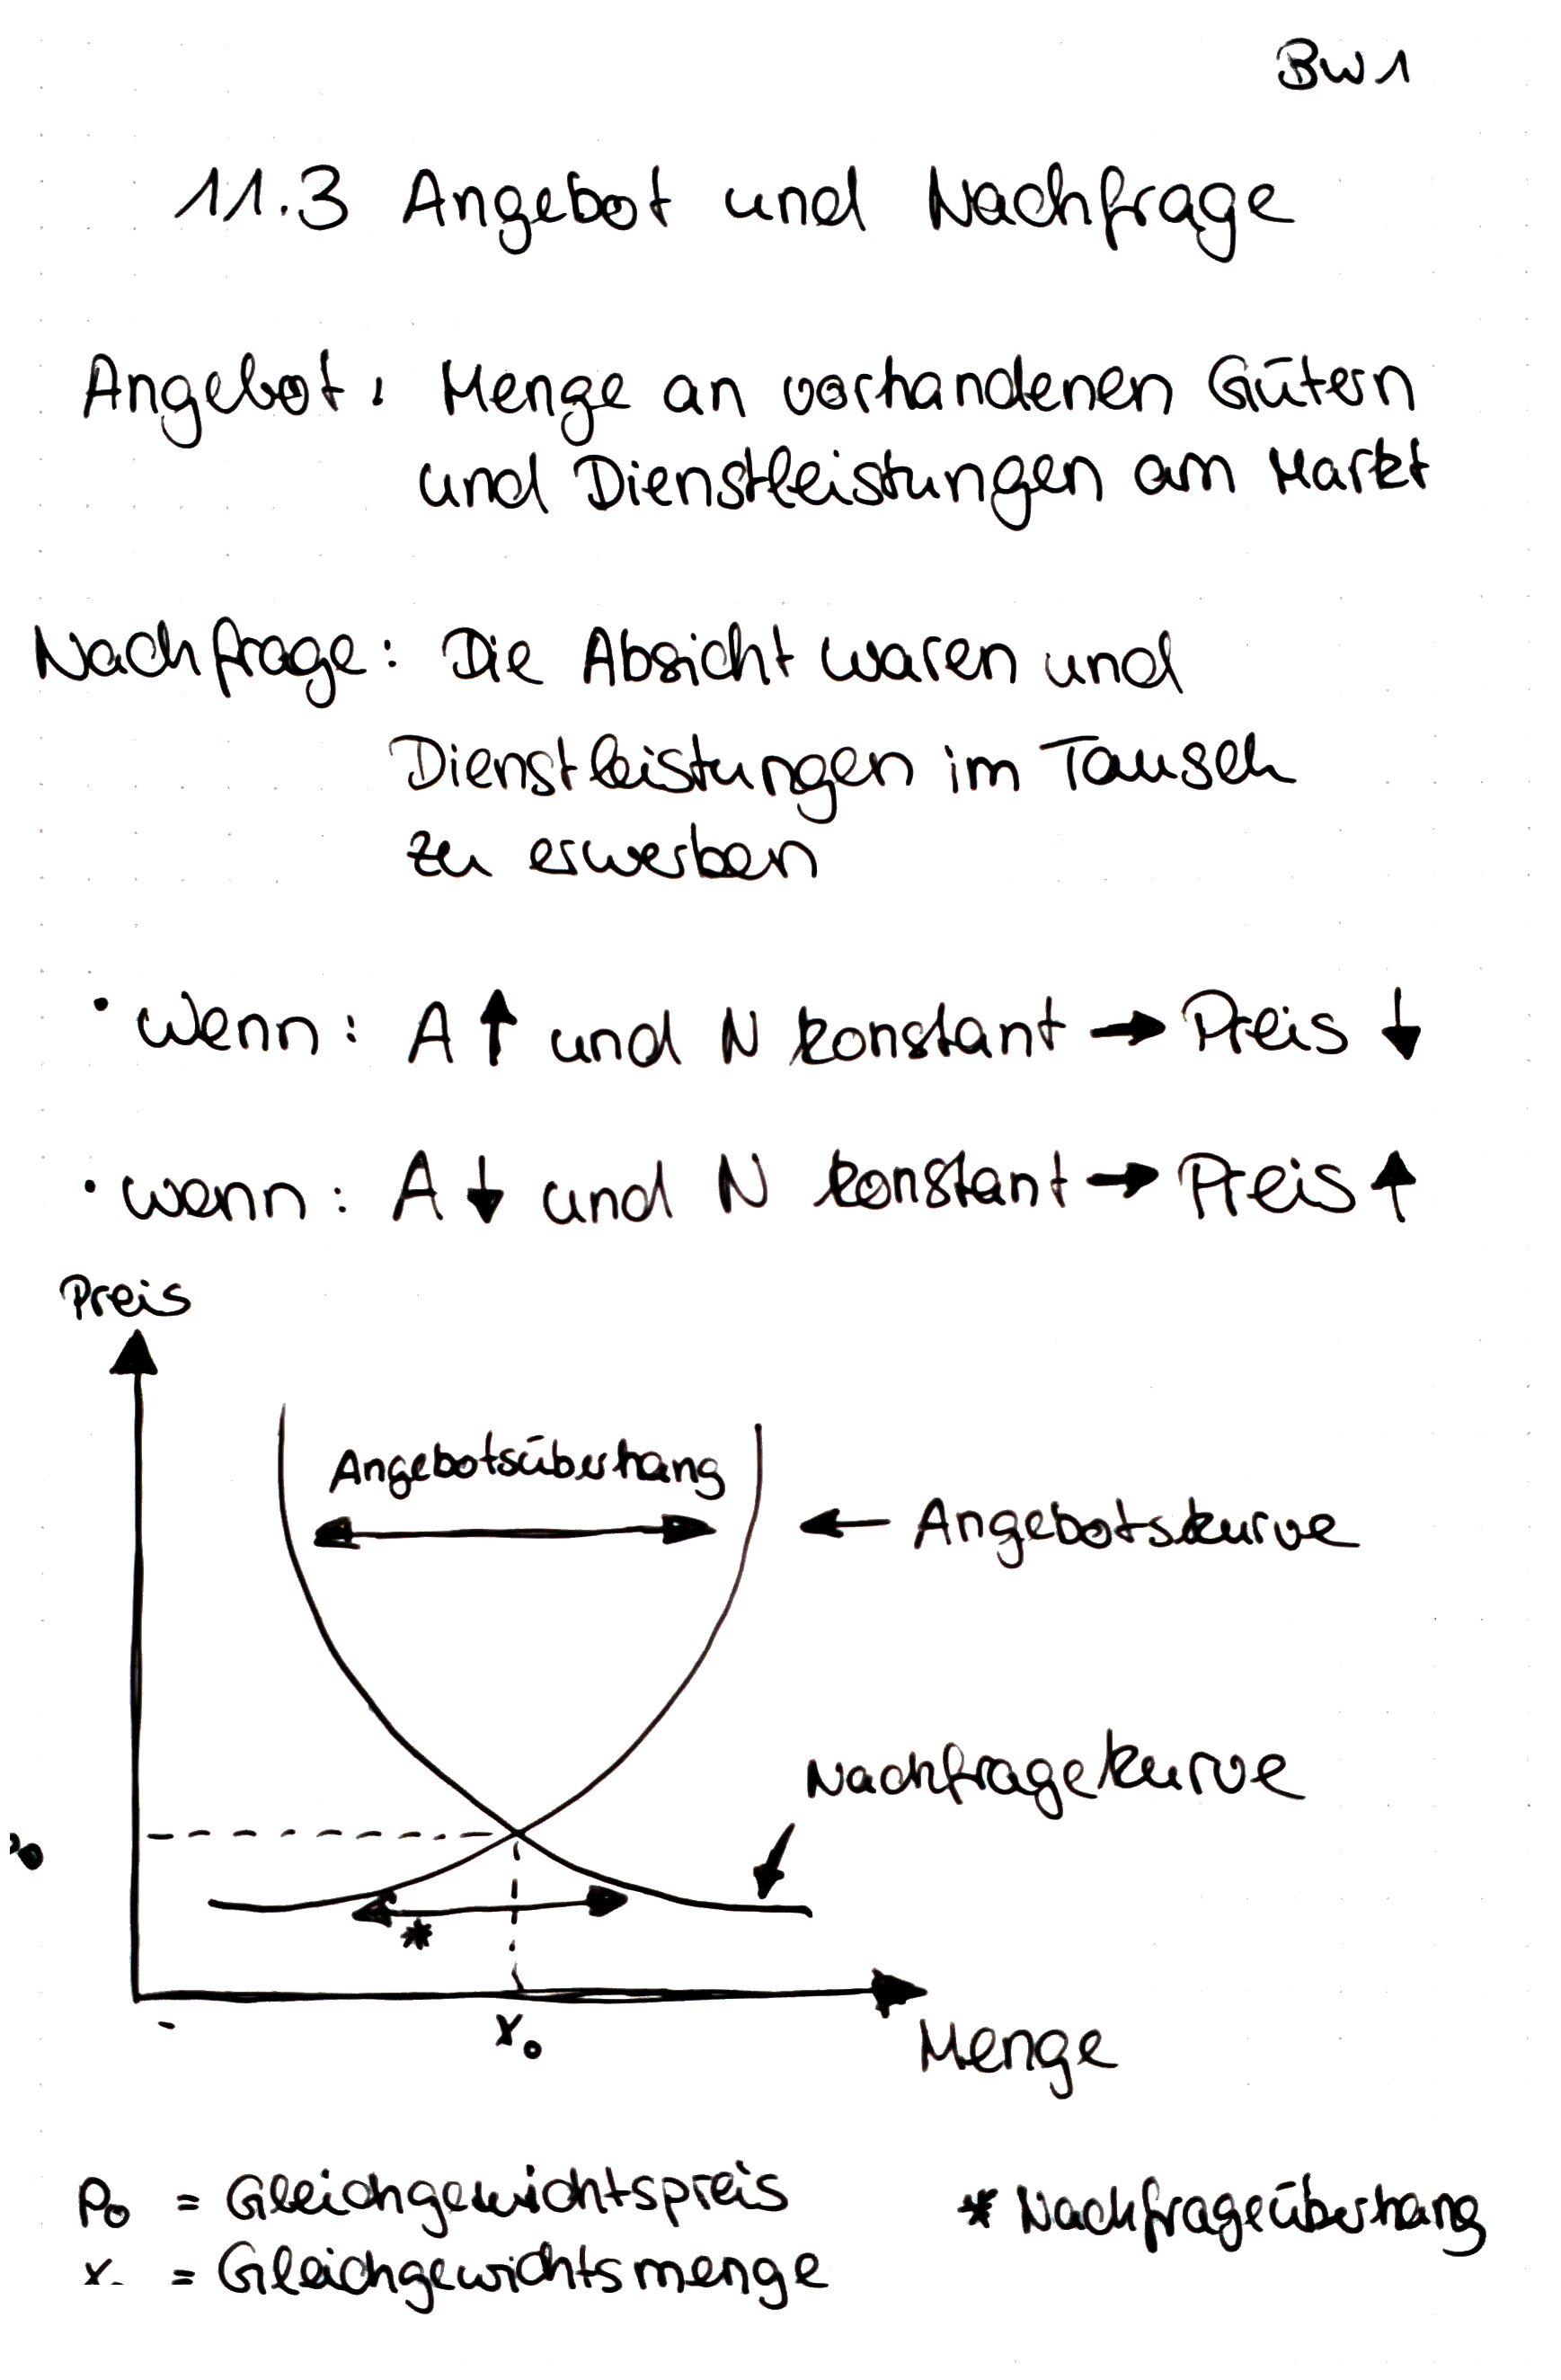 BW1
11.3 Angebot und Nachfrage
Angebot: Menge an vorhandenen Gütern
und Dienstleistungen am Markt
Nachfrage: Die Absicht Waren und
Dienstleistungen im Tausch
zu erwerben
· Wenn: A ↑ und N konstant → Preis ↓
· Wenn: A ↓ und N konstant → Preis ↑
Preis
Angebotsüberhang
← Angebotskurve
Nachfragekurve
p₀
*
x₀
Menge
p₀ = Gleichgewichtspreis
* Nachfrageüberhang
x. = Gleichgewichtsmenge